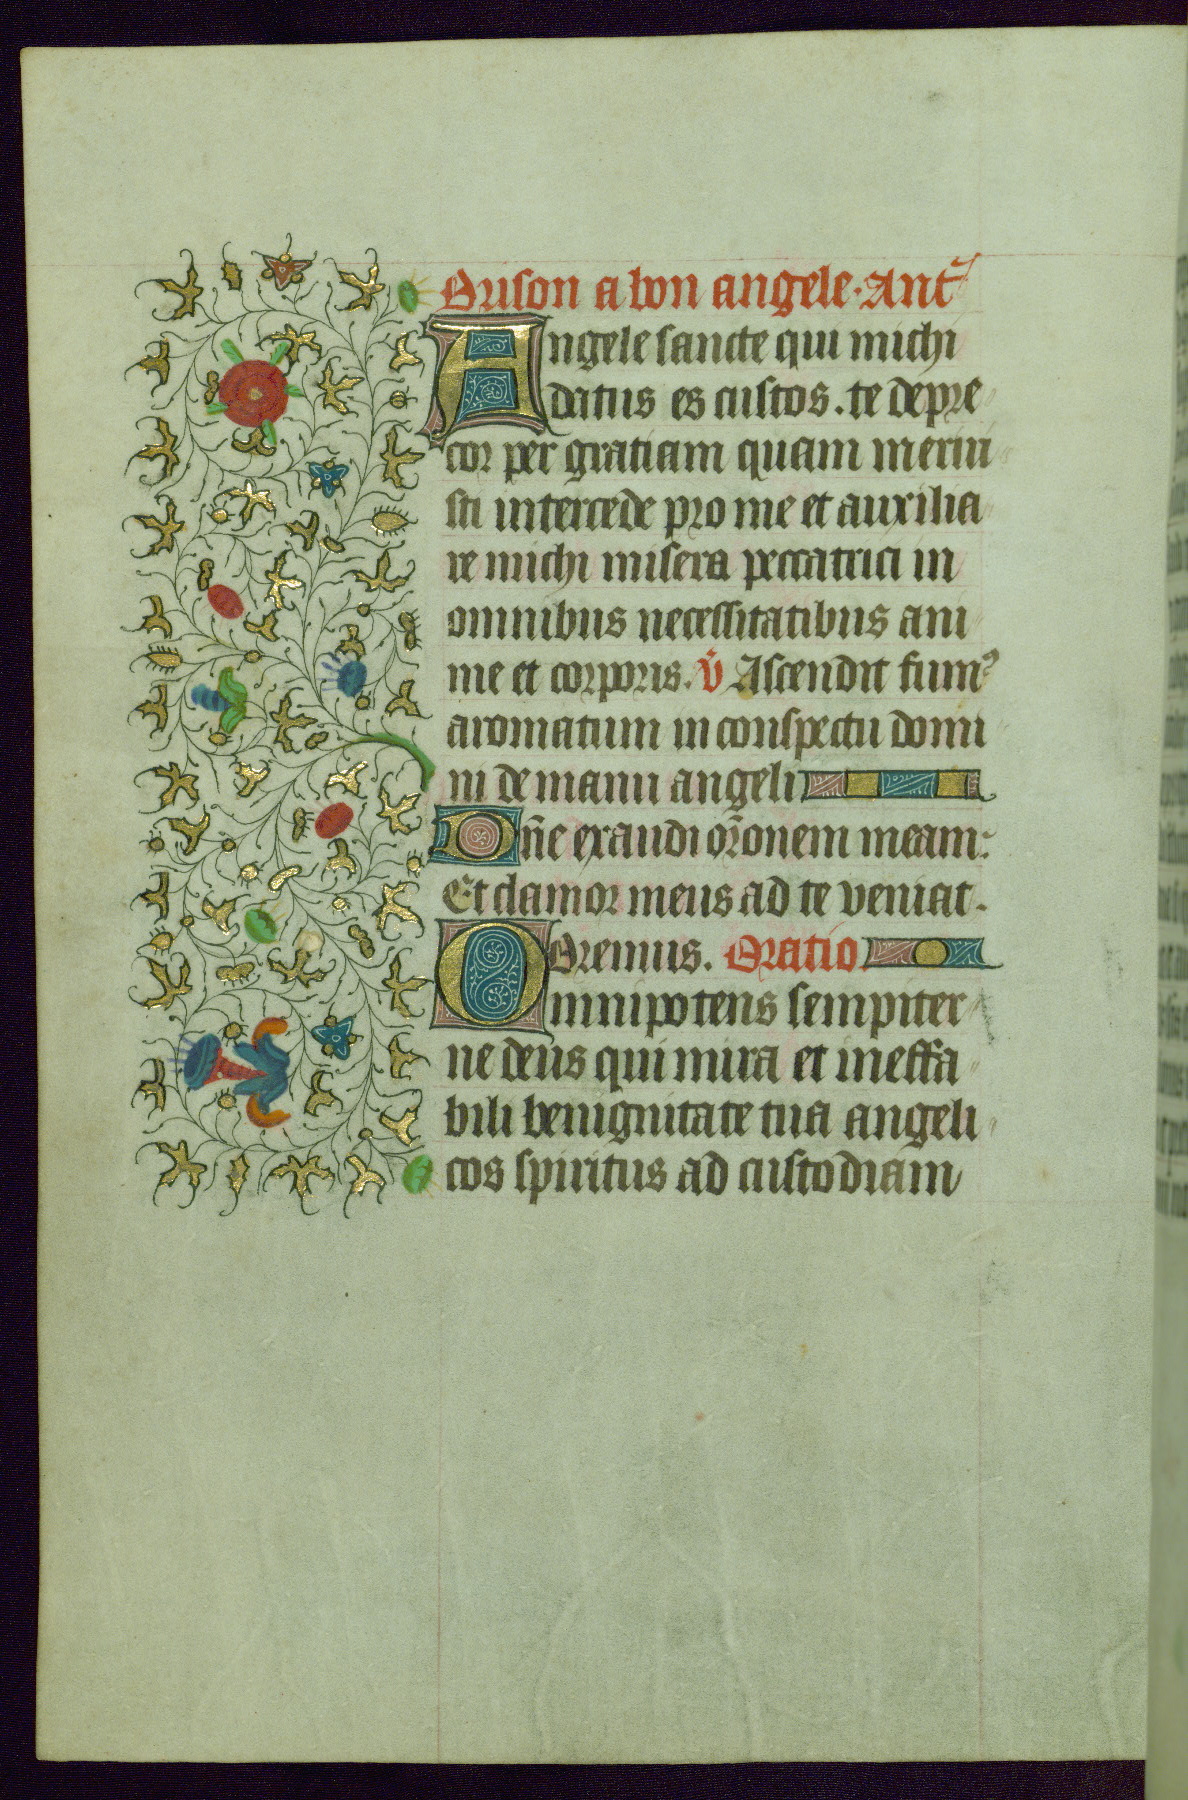 Orison a bon angele. Ant̃
Angele sancte qui michi
datus es custos. te depre
cor per gratiam quam merui
sti intercede pro me et auxilia
re michi misera peccatrici in
omnibus necessitatibus ani
me et corporis. v̄ Ascendit fumꝰ
aromatum in conspectu domi
ni de manu angeli
Dn̄e exaudi or̄onem meam:
Et clamor meus ad te veniat.
Oremus. Oratio.
Omnipotens sempiter
ne deus qui mira et ineffa
bili benignitate tua angeli
cos spiritus ad custodiam